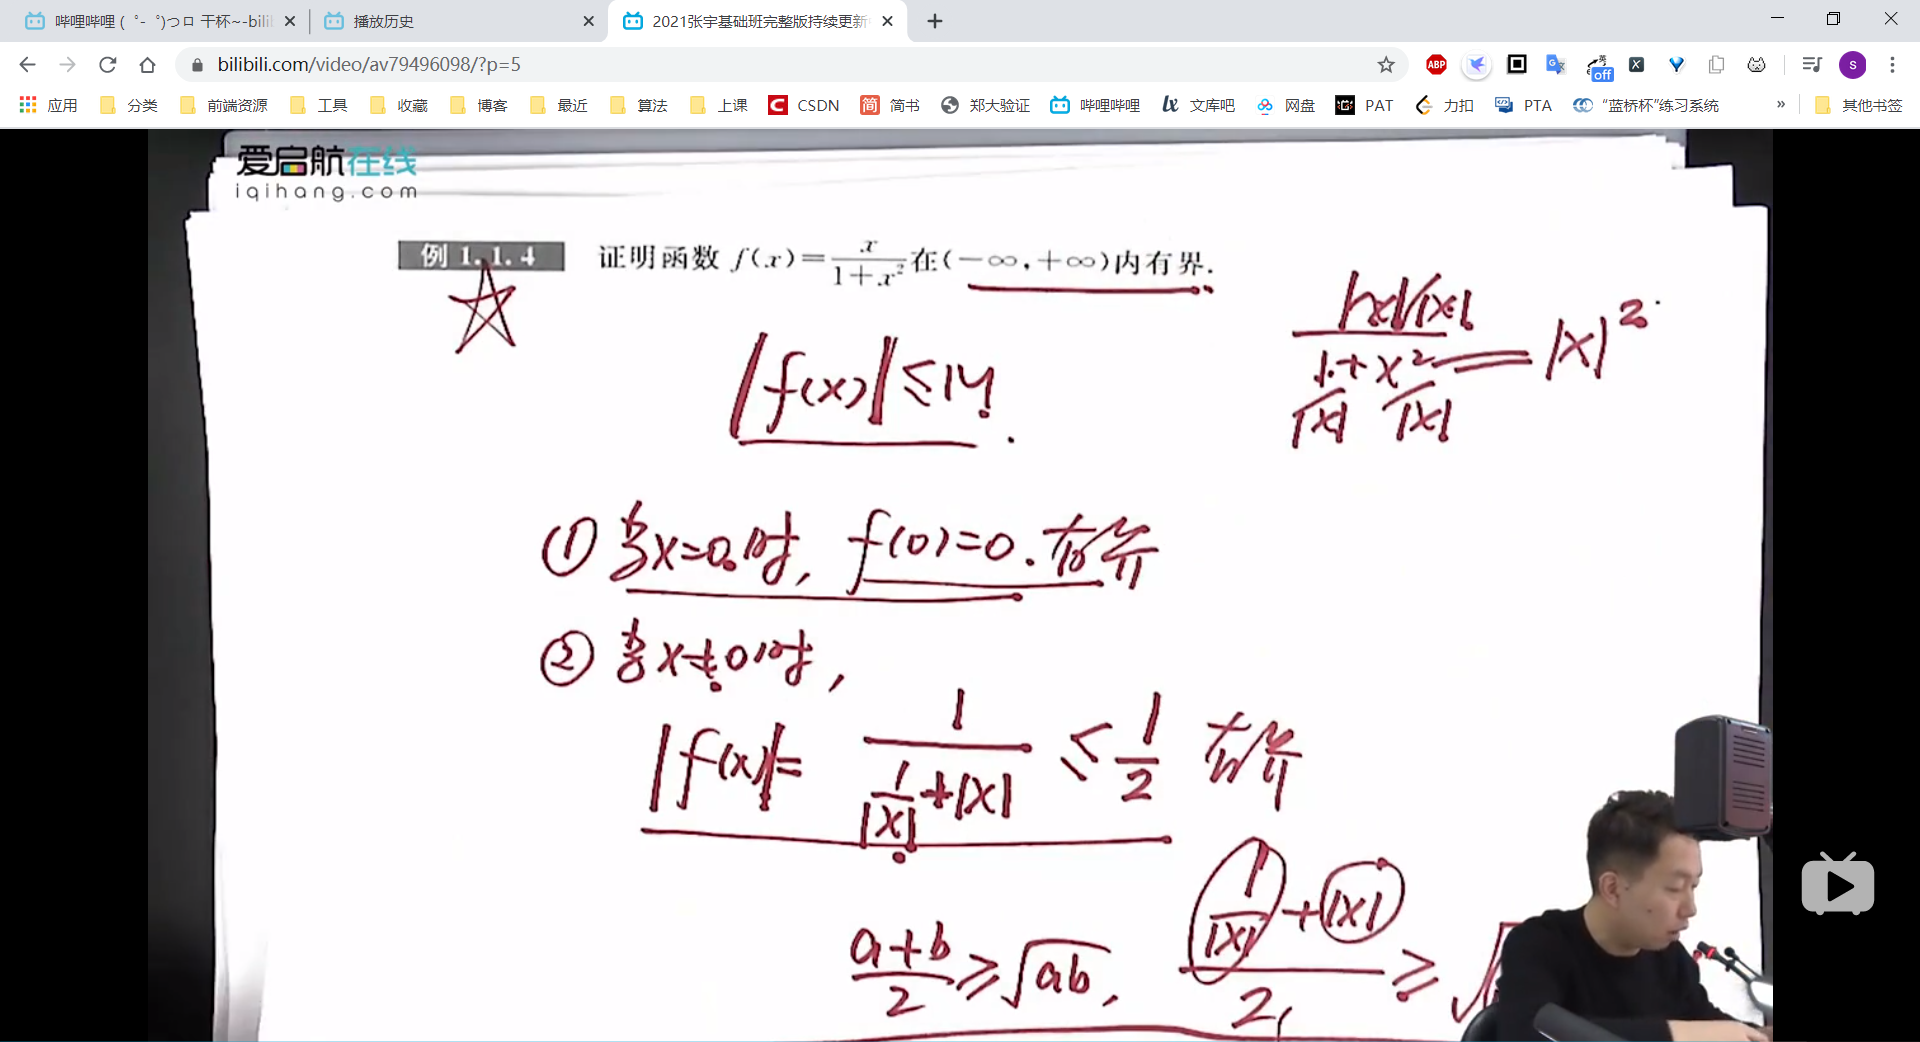 哔哩哔哩 ( ゜- ゜)つロ 干杯~-bili
播放历史
2021张宇基础班完整版持续更新
bilibili.com/video/av79496098/?p=5
ABP
英
off
S
应用 分类 前端资源 工具 收藏 博客 最近 算法 上课 C CSDN 简 简书 郑大验证 哔哩哔哩 lx 文库吧 网盘 PAT 力扣 PTA “蓝桥杯”练习系统 » 其他书签
爱启航在线
iqihang.com
例 1.1.4 证明函数 f(x)=x/(1+x²)在(-∞,+∞)内有界.
|x|/|x|
1+x² = |x|²
|x| |x|
|f(x)|≤M
① 当x=0时, f(0)=0. 有界
② 当x≠0时,
|f(x)|= 1/(1/|x|+|x|) ≤ 1/2 有界
(a+b)/2 ≥ √ab, (1/|x|+|x|)/2 ≥ √